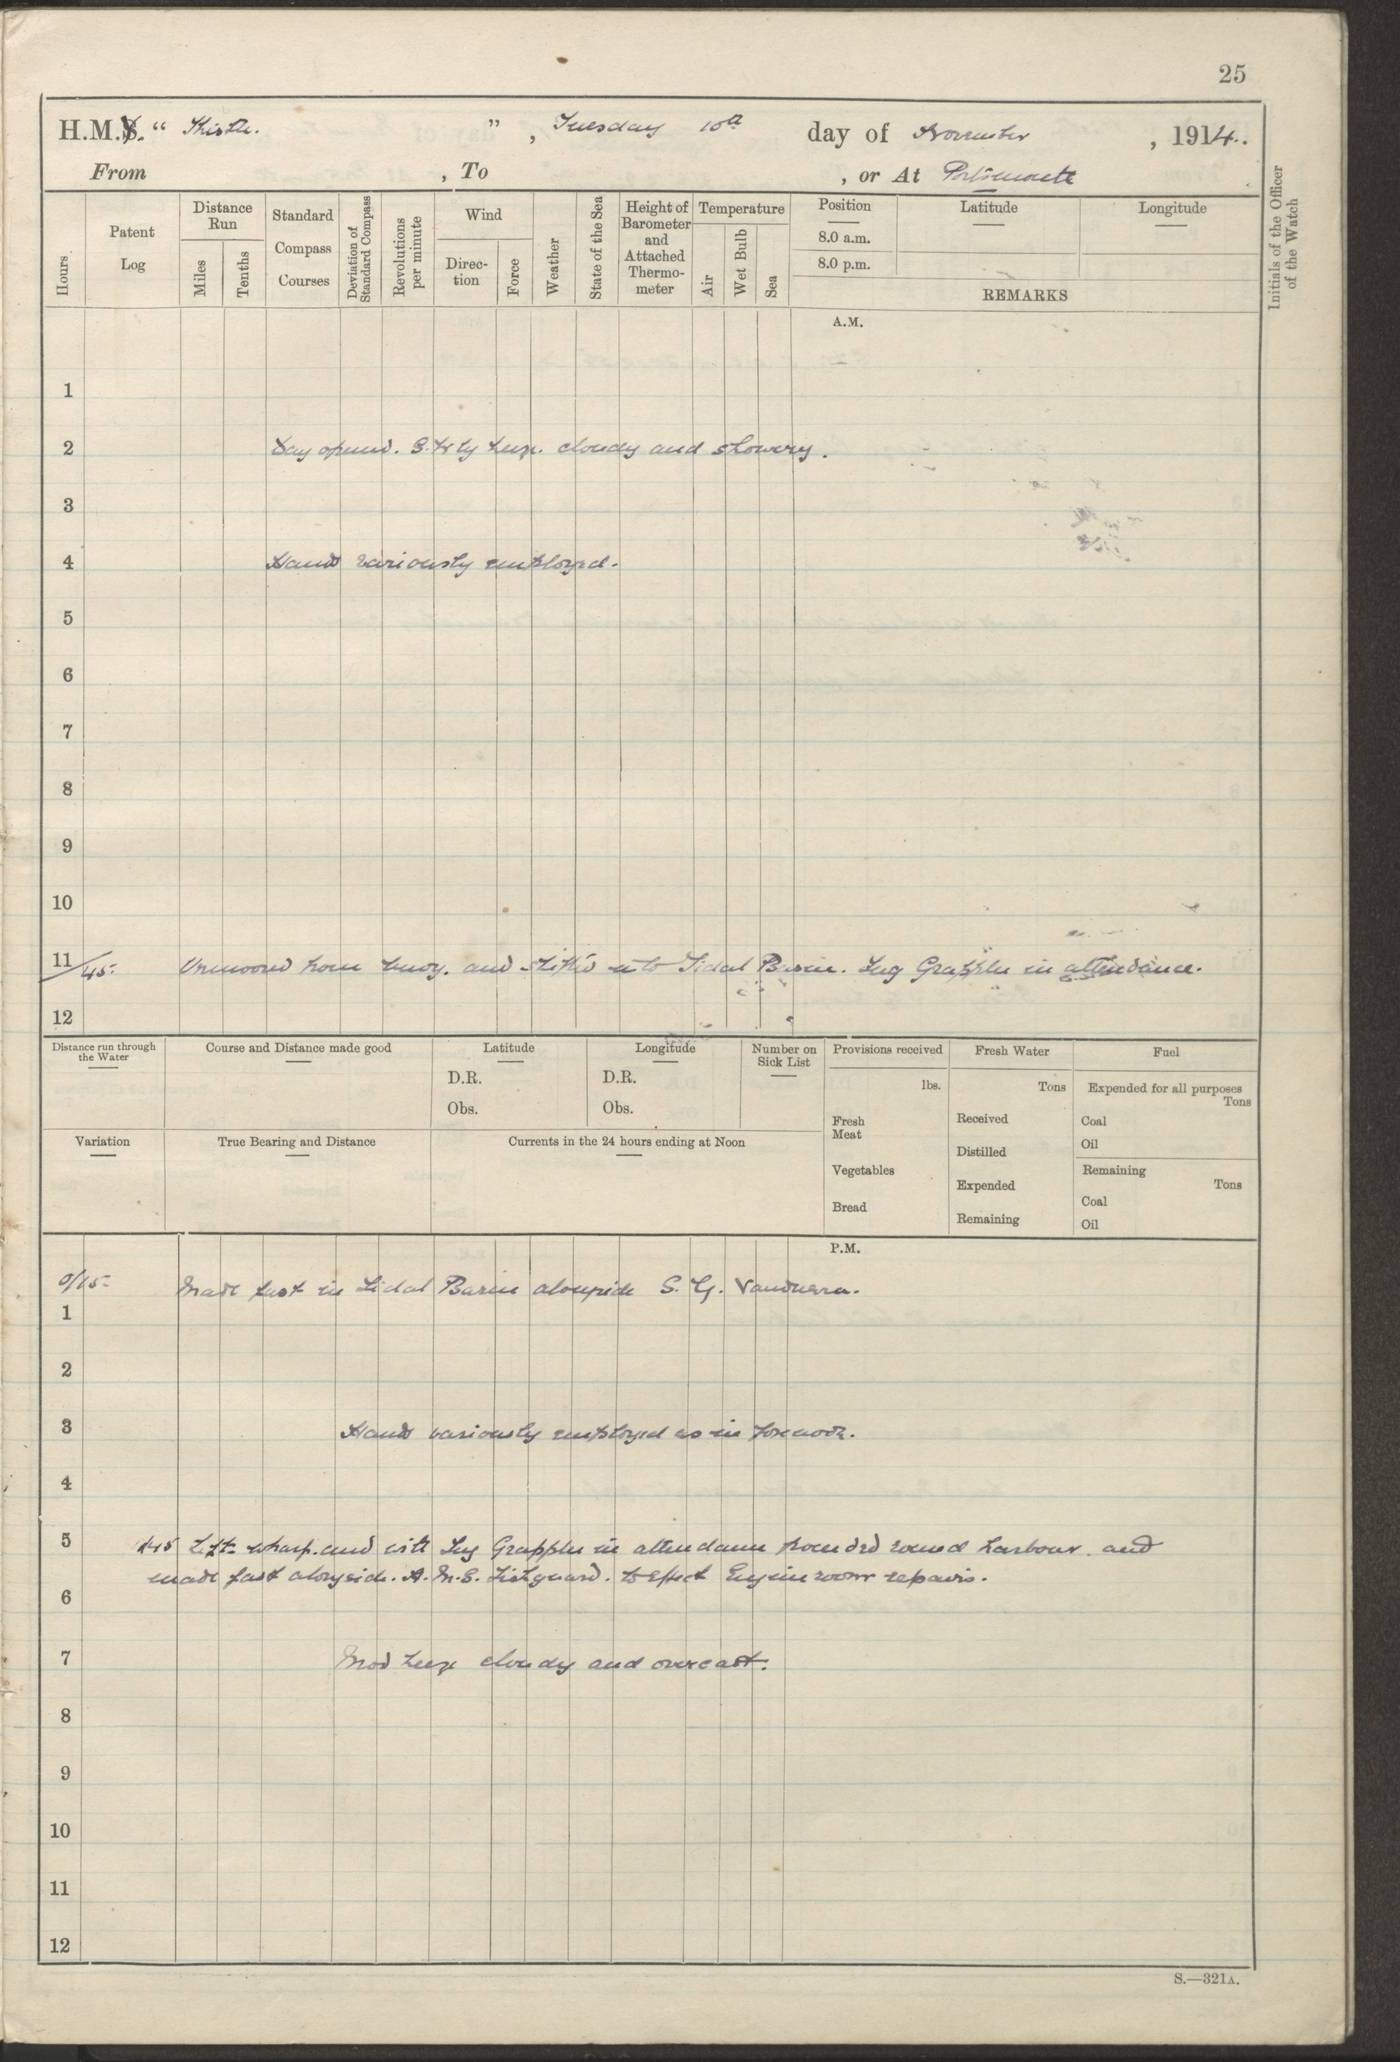 25
H.M.Y. " Thistle. " , Tuesday 10th day of November , 1914.
From , To , or At Portsmouth
Hours
Patent Log
Distance Run
Miles
Tenths
Standard Compass Courses
Deviation of Standard Compass
Revolutions per minute
Wind
Direction
Force
Weather
State of the Sea
Height of Barometer and Attached Thermometer
Temperature
Air
Wet Bulb
Sea
Position
8.0 a.m.
8.0 p.m.
Latitude
Longitude
REMARKS
Initials of the Officer of the Watch
A.M.
1
2 Day opened. S.W ly breeze. cloudy and showery.
3
4 Hands variously employed.
5
6
7
8
9
10
11/45. Unmoored from buoy. and shifted into Tidal Basin. Tug Grappler in attendance.
12
Distance run through the Water
Course and Distance made good
Latitude
D.R.
Obs.
Longitude
D.R.
Obs.
Number on Sick List
Variation
True Bearing and Distance
Currents in the 24 hours ending at Noon
Provisions received
lbs.
Fresh Meat
Vegetables
Bread
Fresh Water
Tons
Received
Distilled
Expended
Remaining
Fuel
Expended for all purposes
Tons
Coal
Oil
Remaining
Tons
Coal
Oil
P.M.
0/15- Made fast in Tidal Basin alongside S. Y. Vanduara.
1
2
3 Hands variously employed as in forenoon.
4
5 445 Left wharf. and with Tug Grappler in attendance proceeded round harbour. and
made fast alongside. H.M.S. Fishguard. to effect Engineroom repairs.
6
7 Mod breeze cloudy and overcast.
8
9
10
11
12
S.—321A.